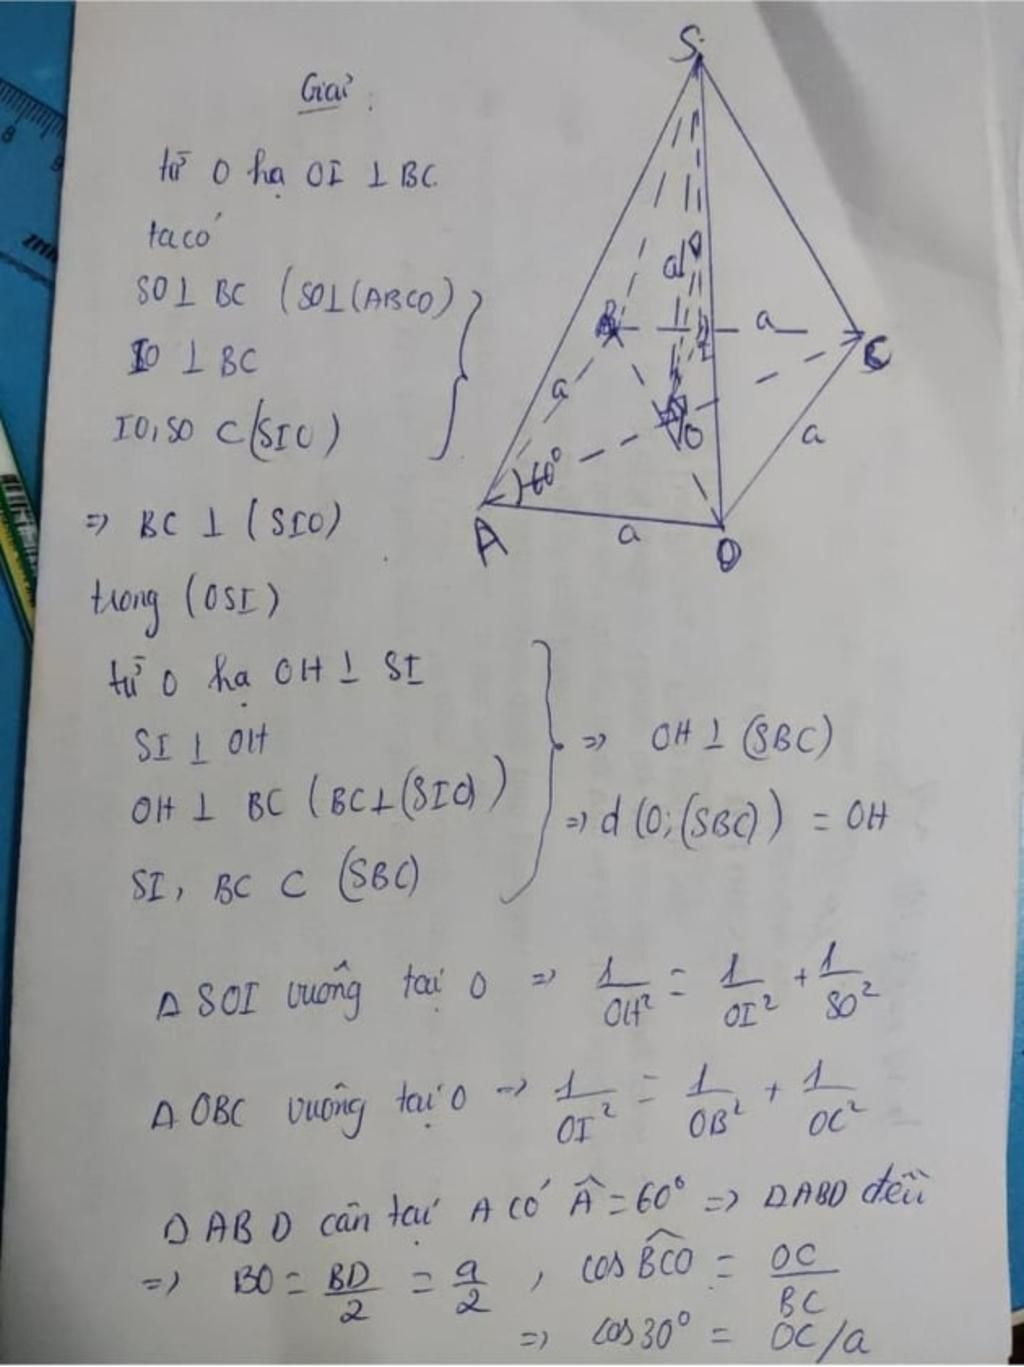 Giải:
từ O hạ OI ⊥ BC
ta có
SO ⊥ BC (SO ⊥ (ABCD)
IO ⊥ BC
IO, SO ⊂ (SIO)
=> BC ⊥ (SIO)
trong (OSI)
từ O hạ OH ⊥ SI
SI ⊥ OH
OH ⊥ BC (BC ⊥ (SIO)) => OH ⊥ (SBC)
SI, BC ⊂ (SBC) => d(O; (SBC)) = OH
Δ SOI vuông tại O => 1/OH² = 1/OI² + 1/SO²
Δ OBC vuông tại O => 1/OI² = 1/OB² + 1/OC²
Δ ABD cân tại A có Â = 60° => Δ ABD đều
=> BO = BD/2 = a/2 , cos BCO = OC/BC
=> cos 30° = OC/a
S
B
a
I
C
a
H
a
O
60°
a
A
a
D
8
9